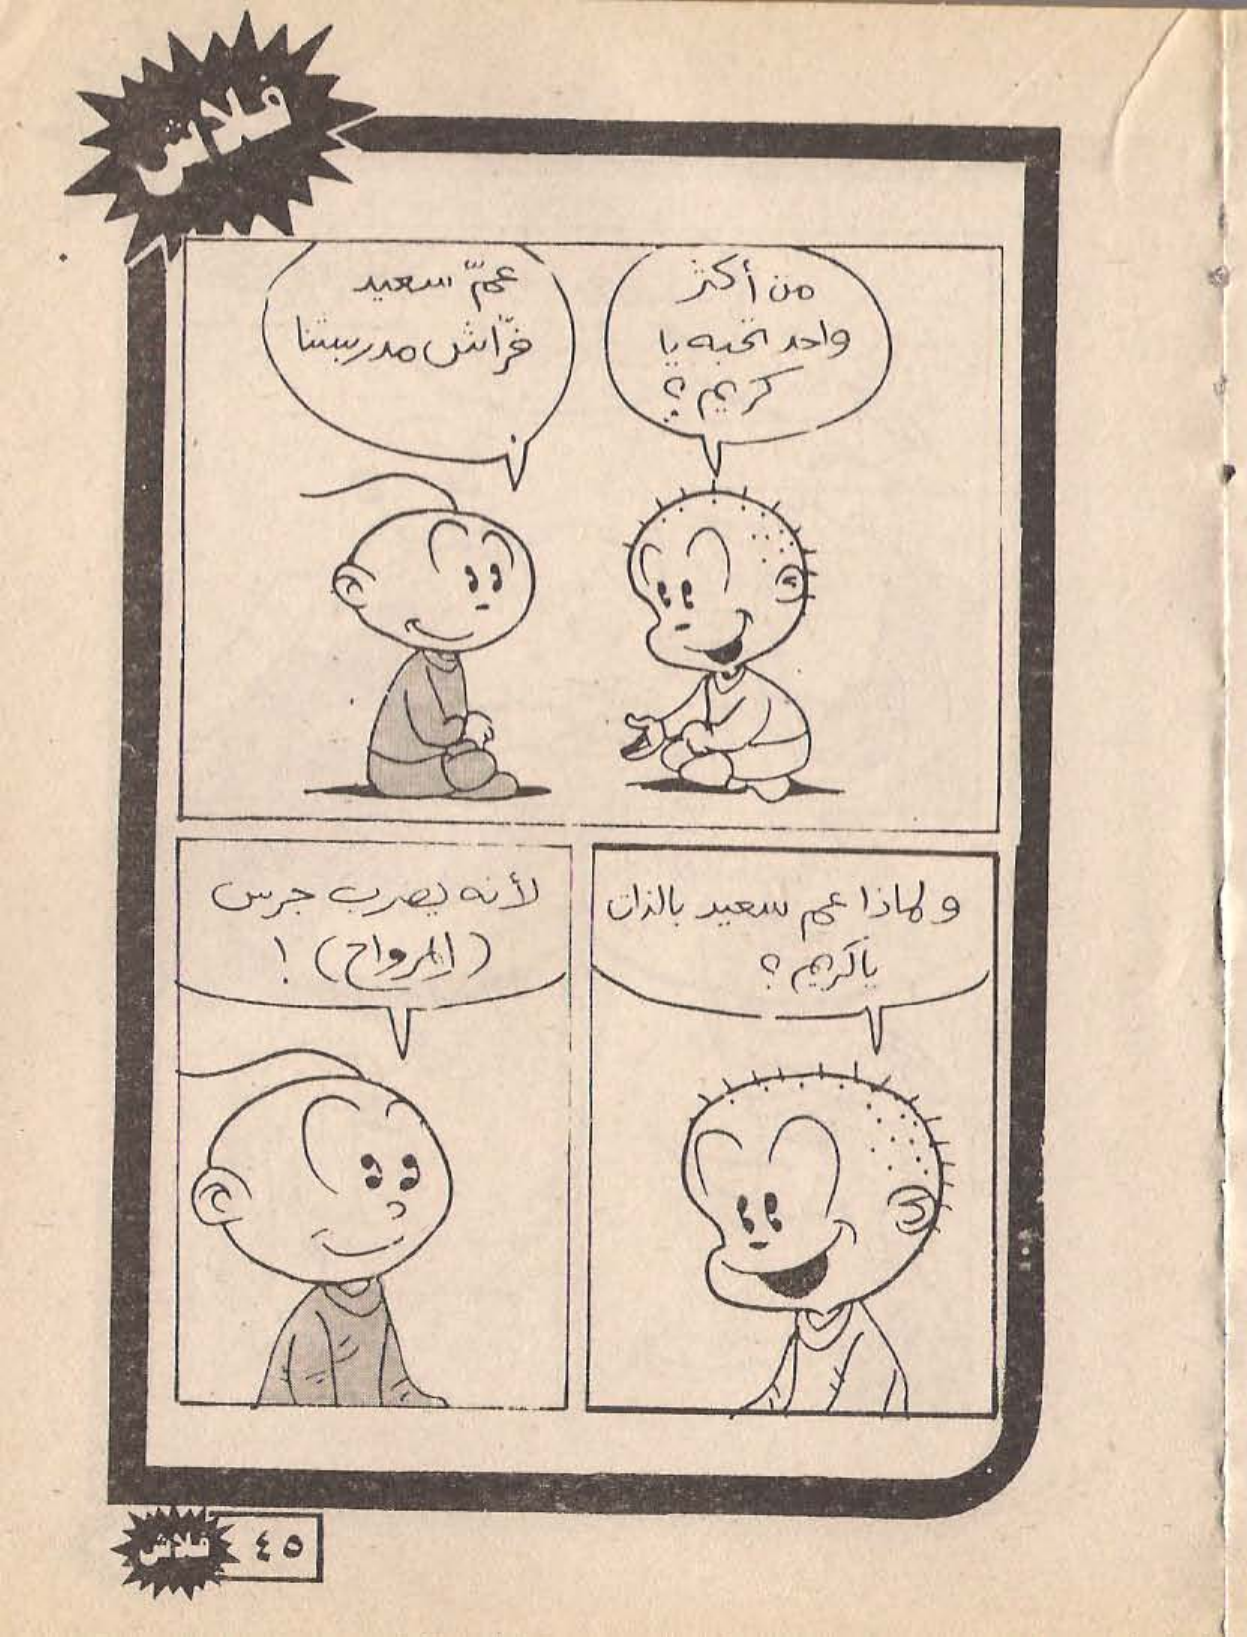 فلاش
من أكثر
واحد تحبه يا
كريم؟
عمّ سعيد
فرّاش مدرستنا
ولماذا عم سعيد بالذات
ياكريم؟
لأنه يضرب جرس
(المرواح)!
فلاش
٤٥